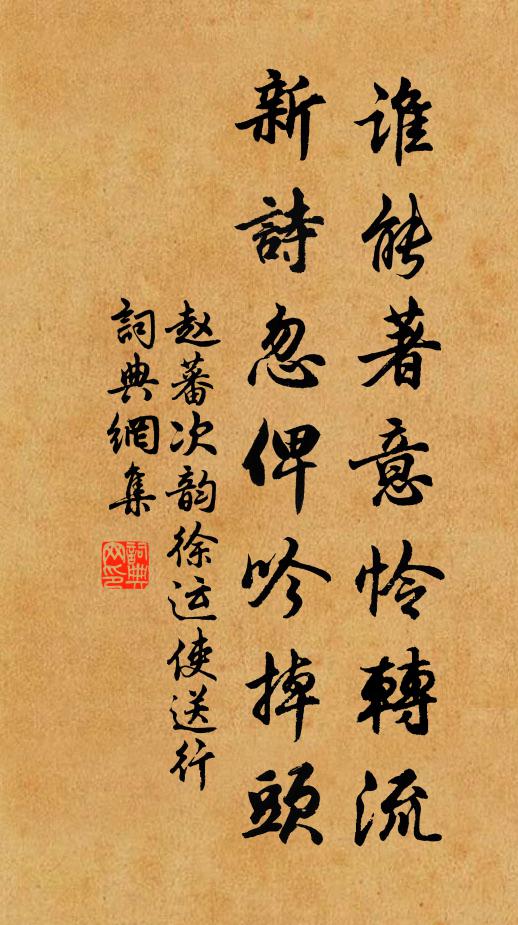 谁能著意怜轉流
新詩忽俾吟掉頭
赵蕃次韵徐运使送行
詞典網集
詞典网印